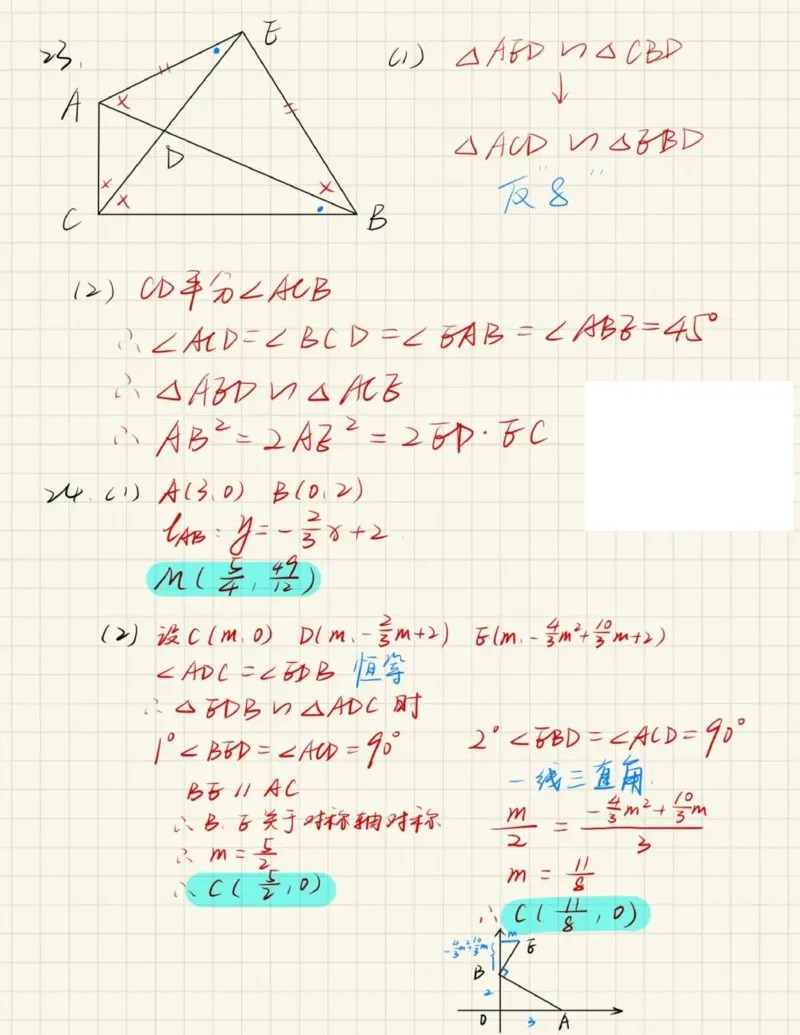 23.
E
A
D
C
B
(1) △AED ∽ △CBD
↓
△ACD ∽ △EBD
反"8"
(2) CD平分∠ACB
∴ ∠ACD=∠BCD=∠EAB=∠ABE=45°
∴ △AED ∽ △ACE
∴ AB²=2AE²=2ED·EC
24. (1) A(3,0) B(0,2)
l_AB: y=-2/3x+2
M(5/4, 49/12)
(2) 设C(m,0) D(m,-2/3m+2) E(m,-4/3m²+10/3m+2)
∠ADC=∠EDB 恒等
∴ △EDB ∽ △ADC时
1° ∠BED=∠ACD=90°
BE∥AC
∴ B、E关于对称轴对称
∴ m=5/2
∴ C(5/2,0)
2° ∠EBD=∠ACD=90°
一线三直角
m/2=(-4/3m²+10/3m)/3
m=11/8
∴ C(11/8,0)
m
-4/3m²+10/3m
E
B
2
0
3
A